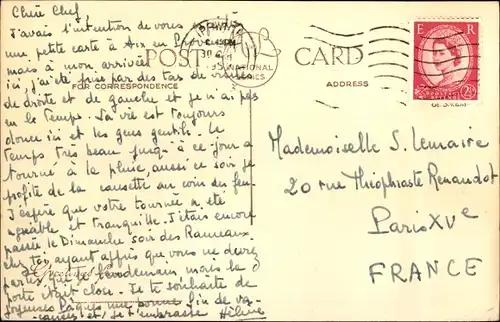 Chère Chef
J'avais l'intention de vous
une petite carte à Aix en Provence
mais à mon arrivée
ici, j'ai été prise par des tas de visites
de droite et de gauche et je n'ai pas
eu le temps. La vie est toujours
douce ici et les gens gentils. Le
temps très beau jusqu'à ce jour a
tourné à la pluie, aussi ce soir je
profite de la causette au coin du feu.
J'espère que votre tournée a été
agréable et tranquille. J'étais encore
passée le Dimanche soir des Rameaux
chez toi, ayant appris que vous ne
partiez que le lendemain mais la
porte était close. Je te souhaite de
joyeuses Pâques une bonne fin de va-
cances et je t'embrasse Hélène
POST CARD
NATIONAL
SERIES
FOR CORRESPONDENCE
ADDRESS
E R
2½
Mademoiselle S. Lemaire
20 rue Théophraste Renaudot
Paris XVe
FRANCE